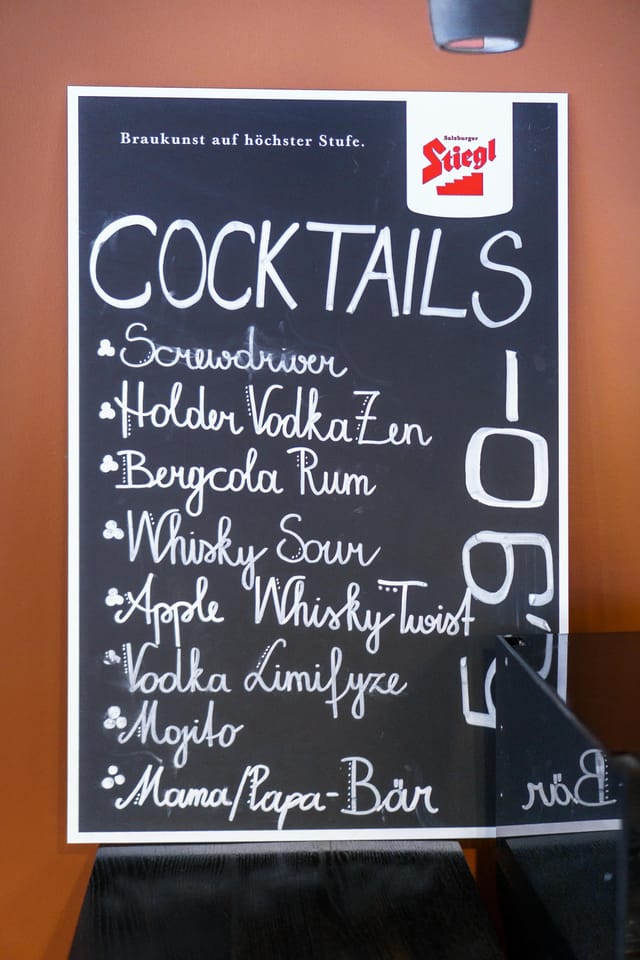 Braukunst auf höchster Stufe.
Salzburger
Stiegl
COCKTAILS
Screwdriver
Holder Vodka Zen
Bergcola Rum
Whisky Sour
Apple Whisky Twist
Vodka Limifyze
Mojito
Mama/Papa-Bär
5,90-
Bär